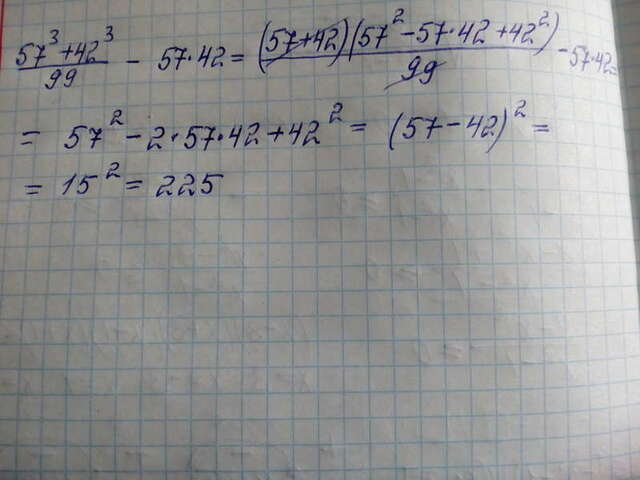 57³+42³/99 - 57·42 = (57+42)(57²-57·42+42²)/99 - 57·42=
= 57²-2·57·42+42² = (57-42)² =
= 15² = 225